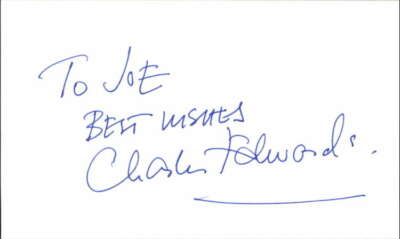 To JOE
BEST WISHES
Charles Edwards.